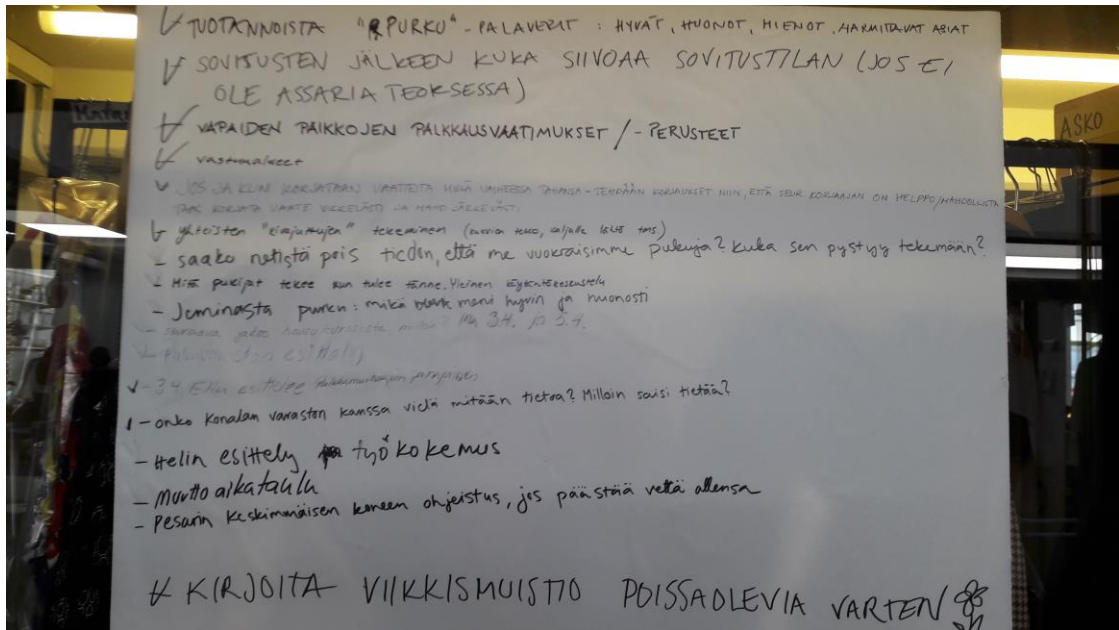 TUOTANNOISTA "PURKU" - PALAVERIT : HYVÄT, HUONOT, HIENOT, HARMITTAVAT ASIAT
SOVITUSTEN JÄLKEEN KUKA SIIVOAA SOVITUSTILAN (JOS EI
OLE ASSARIA TEOKSESSA)
ASKO
VAPAIDEN PAIKKOJEN PALKKAUSVAATIMUKSET / - PERUSTEET
vastuualueet
JOS JA KUN KORJATAAN VAATTEITA MISSÄ VAIHEESSA TAHANSA - TEHDÄÄN KORJAUKSET NIIN, ETTÄ SEUR KORJAAJAN ON HELPPO/MAHDOLLISTA
TAAS KORJATA VAATE JÄRKEVÄSTI
yhteisten tekeminen
- saako netistä pois tiedon, että me vuokraisimme pukuja? Kuka sen pystyy tekemään?
- Mitä pukijat tekee kun tulee tänne. Yleinen
- Jeminasta purku: mikä meni hyvin ja huonosti
3.4. ja 5.4.
esittely
- 3.4. esittelee
- onko Konalan varaston kanssa vielä mitään tietoa? Milloin saisi tietää?
- Helin esittely työkokemus
- Muuttoaikataulu
- Pesarin keskimmäisen koneen ohjeistus, jos päästää vettä allensa
KIRJOITA VIIKKISMUISTIO POISSAOLEVIA VARTEN